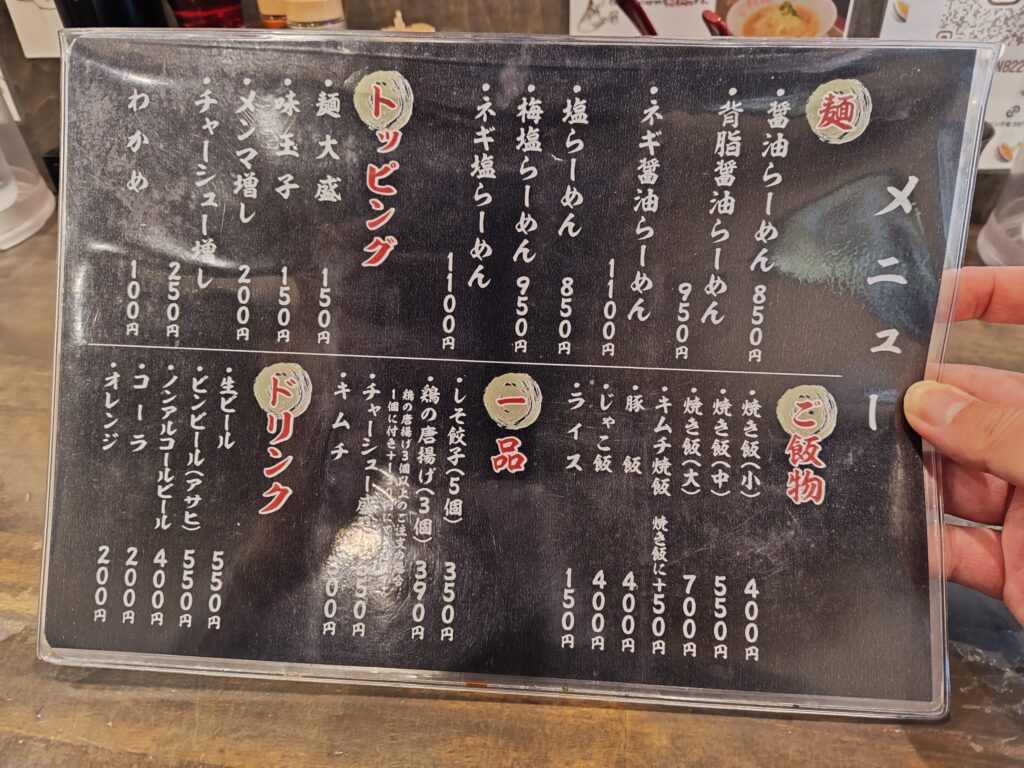 メニュー
麺
・醤油らーめん 850円
・背脂醤油らーめん 950円
・ネギ醤油らーめん 1100円
・塩らーめん 850円
・梅塩らーめん 950円
・ネギ塩らーめん 1100円
トッピング
・麺大盛 150円
・味玉子 150円
・メンマ増し 200円
・チャーシュー増し 250円
わかめ 100円
ご飯物
・焼き飯(小) 400円
・焼き飯(中) 550円
・焼き飯(大) 700円
・キムチ焼飯 焼き飯に+50円
・豚飯 400円
・じゃこ飯 400円
・ライス 150円
一品
・しそ餃子(5個) 350円
・鶏の唐揚げ(3個) 390円
鶏の唐揚げ3個以上のご注文の場合
1個に付き+
・チャーシュー盛 50円
・キムチ 00円
ドリンク
・生ビール 550円
・ビンビール(アサヒ) 550円
・ノンアルコールビール 400円
・コーラ 200円
・オレンジ 200円
N822